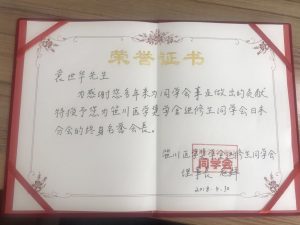 荣誉证书
袁世华先生
为感谢您多年来为同学会事业做出的贡献
特授予您为笹川医学奖学金进修生同学会日本
分会的终身名誉会长。
笹川医学奖学金进修生同学会
同学会
理事长
2018.4.30